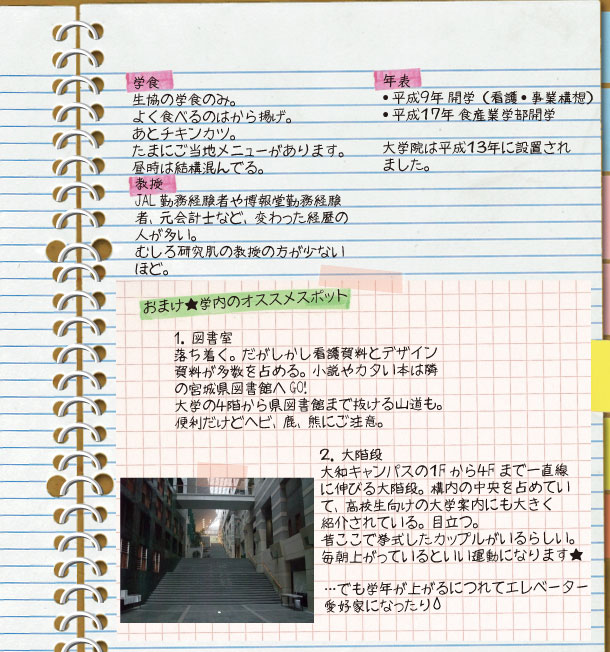 学食
生協の学食のみ。
よく食べるのはから揚げ。
あとチキンカツ。
たまにご当地メニューがあります。
昼時は結構混んでる。
教授
JAL勤務経験者や博報堂勤務経験
者、元会計士など、変わった経歴の
人が多い。
むしろ研究肌の教授の方が少ない
ほど。
年表
•平成9年 開学（看護•事業構想）
•平成17年 食産業学部開学
大学院は平成13年に設置され
ました。
おまけ★学内のオススメスポット
1. 図書室
落ち着く。だがしかし看護資料とデザイン
資料が多数を占める。小説やカタい本は隣
の宮城県図書館へGO!
大学の4階から県図書館まで抜ける山道も。
便利だけどヘビ、鹿、熊にご注意。
2. 大階段
大和キャンパスの1Fから4Fまで一直線
に伸びる大階段。構内の中央を占めてい
て、高校生向けの大学案内にも大きく
紹介されている。目立つ。
昔ここで挙式したカップルがいるらしい。
毎朝上がっているといい運動になります★
…でも学年が上がるにつれてエレベーター
愛好家になったり